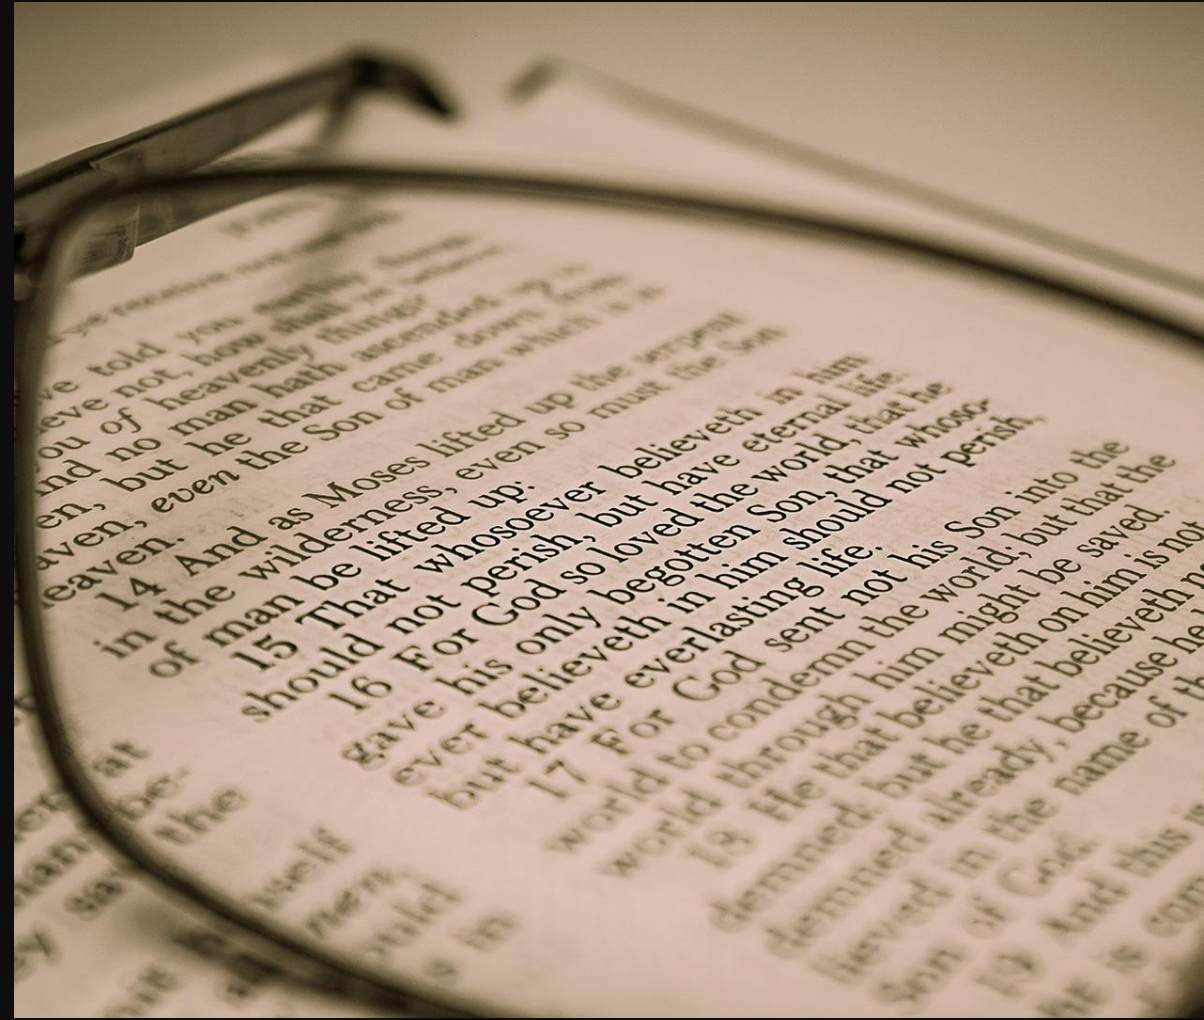 ye receive not
ve told you earthly things
eve not, how shall ye believe
ou of heavenly things?
nd no man hath ascended up
en, but he that came down from
aven, even the Son of man which is
eaven.
14 And as Moses lifted up the serpent
in the wilderness, even so must the Son
of man be lifted up:
15 That whosoever believeth in him
should not perish, but have eternal life.
16 For God so loved the world, that he
gave his only begotten Son, that whoso-
ever believeth in him should not perish,
but have everlasting life.
17 For God sent not his Son into the
world to condemn the world; but that the
world through him might be saved.
18 He that believeth on him is not
demned: but he that believeth
demned already, because he
lieved in the name of the
Son of God.
19 And this
is
at
be-
the
self
men,
ould
in